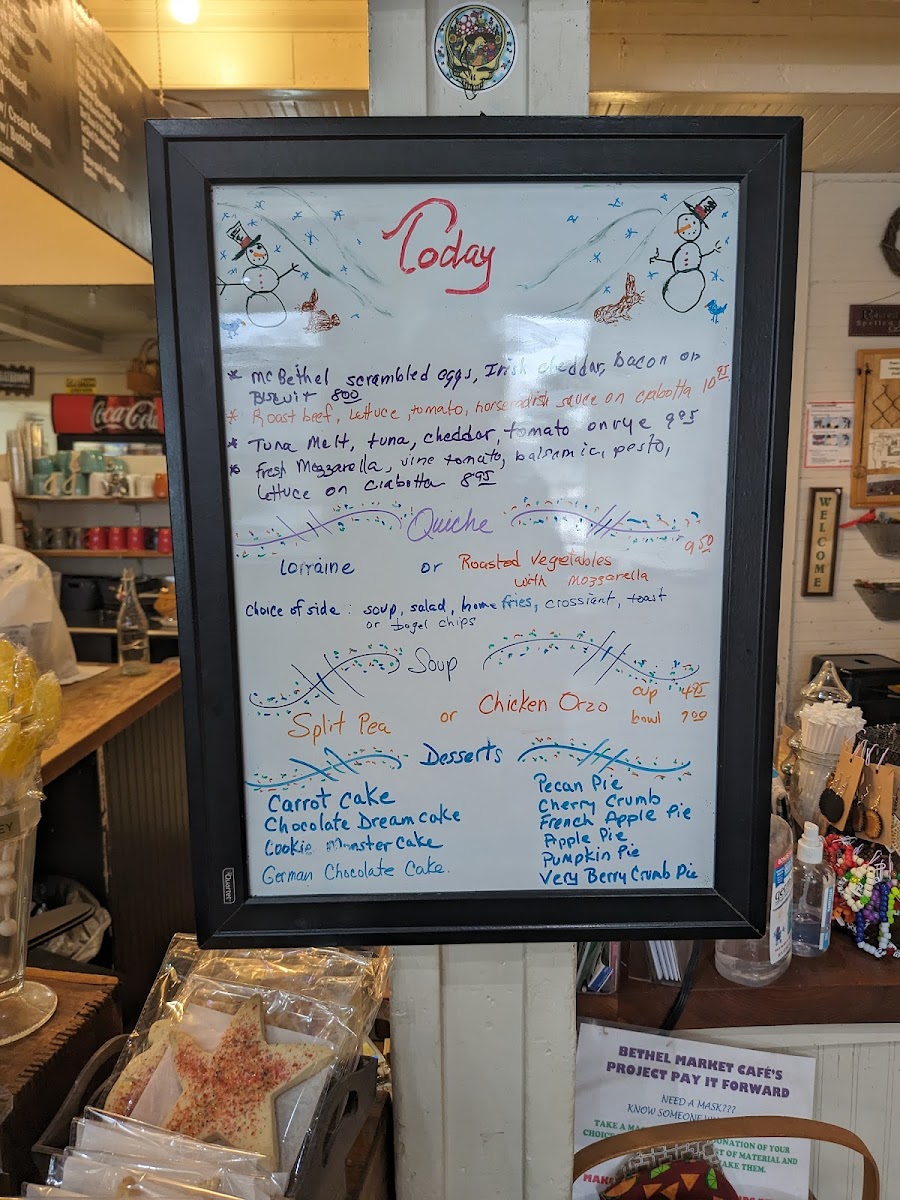 w/ Cream Cheese
Coca-Cola
Today
* McBethel scrambled eggs, Irish cheddar, bacon on
Biscuit 8.00
* Roast beef, lettuce, tomato, horseradish sauce on ciabatta 10.95
* Tuna Melt, tuna, cheddar, tomato on rye 9.95
* Fresh Mozzarella, vine tomato, balsamic, pesto,
lettuce on ciabatta 8.95
Quiche
9.50
Lorraine or Roasted Vegetables
with Mozzarella
Choice of side : soup, salad, home fries, crossiant, toast
or bagel chips
Soup
Split Pea or Chicken Orzo
cup 4.95
bowl 7.00
Desserts
Carrot Cake
Chocolate Dream cake
Cookie Monster Cake
German Chocolate Cake.
Pecan Pie
Cherry Crumb
French Apple Pie
Apple Pie
Pumpkin Pie
Very Berry Crumb Pie
Quartet
WELCOME
BETHEL MARKET CAFÉ'S
PROJECT PAY IT FORWARD
NEED A MASK???
KNOW SOMEONE
TAKE A
DONATION OF YOUR
CHOICE
ST OF MATERIAL AND
TAKE THEM.